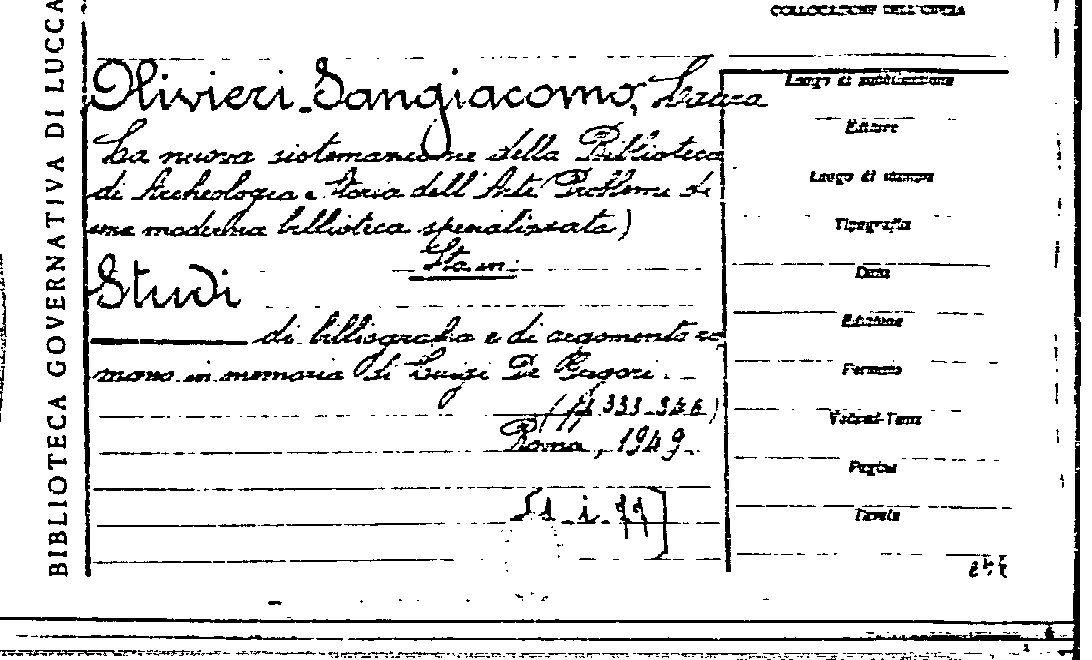 COLLOCAZIONE DELL'OPERA
BIBLIOTECA GOVERNATIVA DI LUCCA
Olivieri Sangiacomo, Laura
La nuova sistemazione della Biblioteca
di Archeologia e Storia dell'Arte (Problemi di
una moderna biblioteca specializzata)
Sta in:
Studi
di bibliografia e di argomento ro
mano in memoria di Luigi De Gregori.
(pp. 333-346)
Roma, 1949.
Luogo di pubblicazione
Editore
Luogo di stampa
Tipografia
Data
Edizione
Formato
Volumi-Tomi
Pagine
Tavole